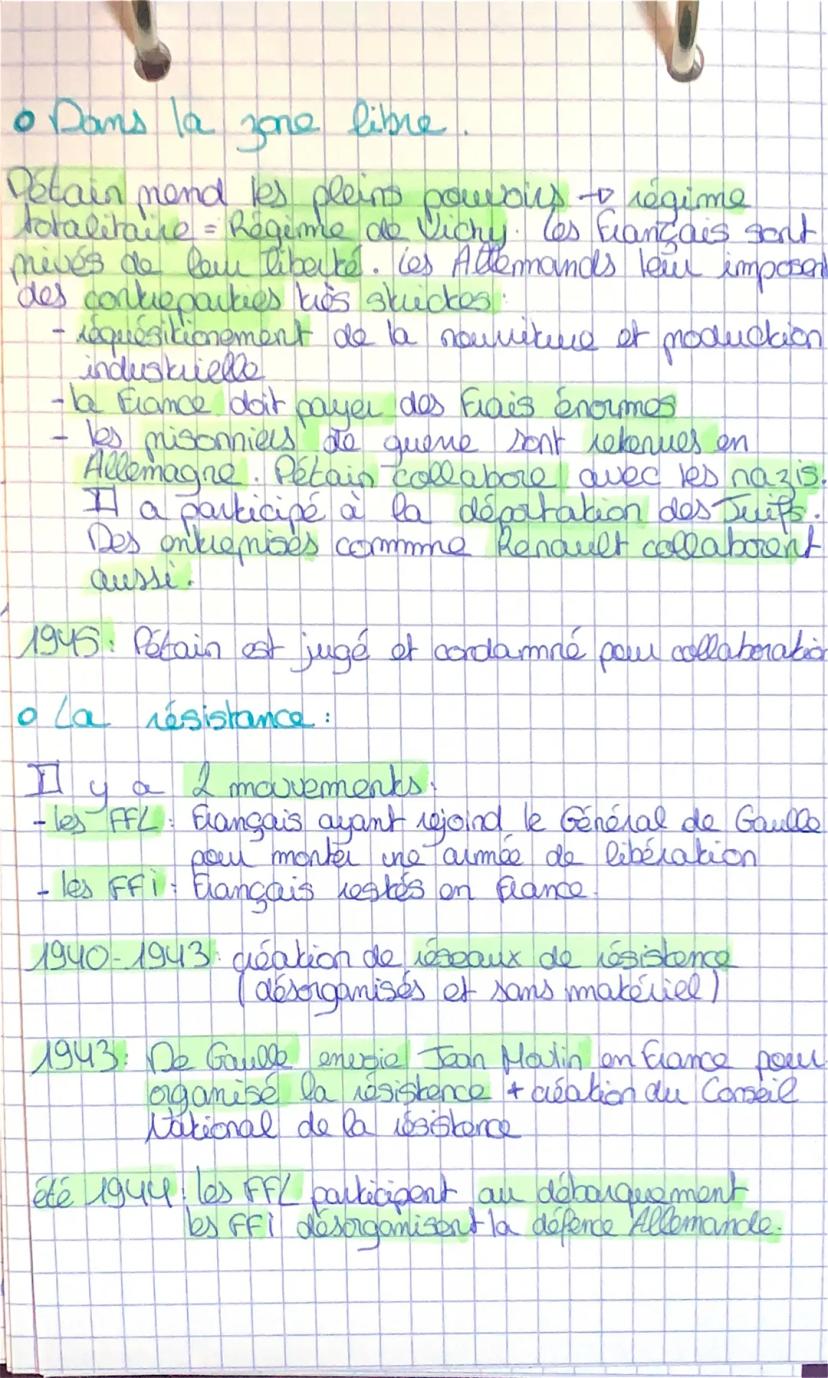 o Dans la zone libre.
Pétain prend les pleins pouvoirs → régime
totalitaire = Régime de Vichy. Les Français sont
privés de leur liberté. Les Allemands leur imposent
des contreparties très strictes :
- réquisitionement de la nourriture et production
industrielle
- la France doit payer des frais énormes
- les prisonniers de guerre sont retenues en
Allemagne. Pétain collabore avec les nazis.
Il a participé à la déportation des Juifs.
Des entreprises commme Renault collaborent
aussi.
1945: Pétain est jugé et condamné pour collaboration
o La résistance :
Il y a 2 mouvements:
- les FFL : Français ayant rejoind le Général de Gaulle
pour monter une armée de libération
- les FFi : Français restés en France.
1940-1943: création de réseaux de résistence
(désorganisés et sans matériel)
1943: De Gaulle envoie Jean Moulin en France pour
organisé la résistence + création du Conseil
National de la résistence
été 1944: les FFL participent au débarquement
les FFi désorganisent la défence Allemande.